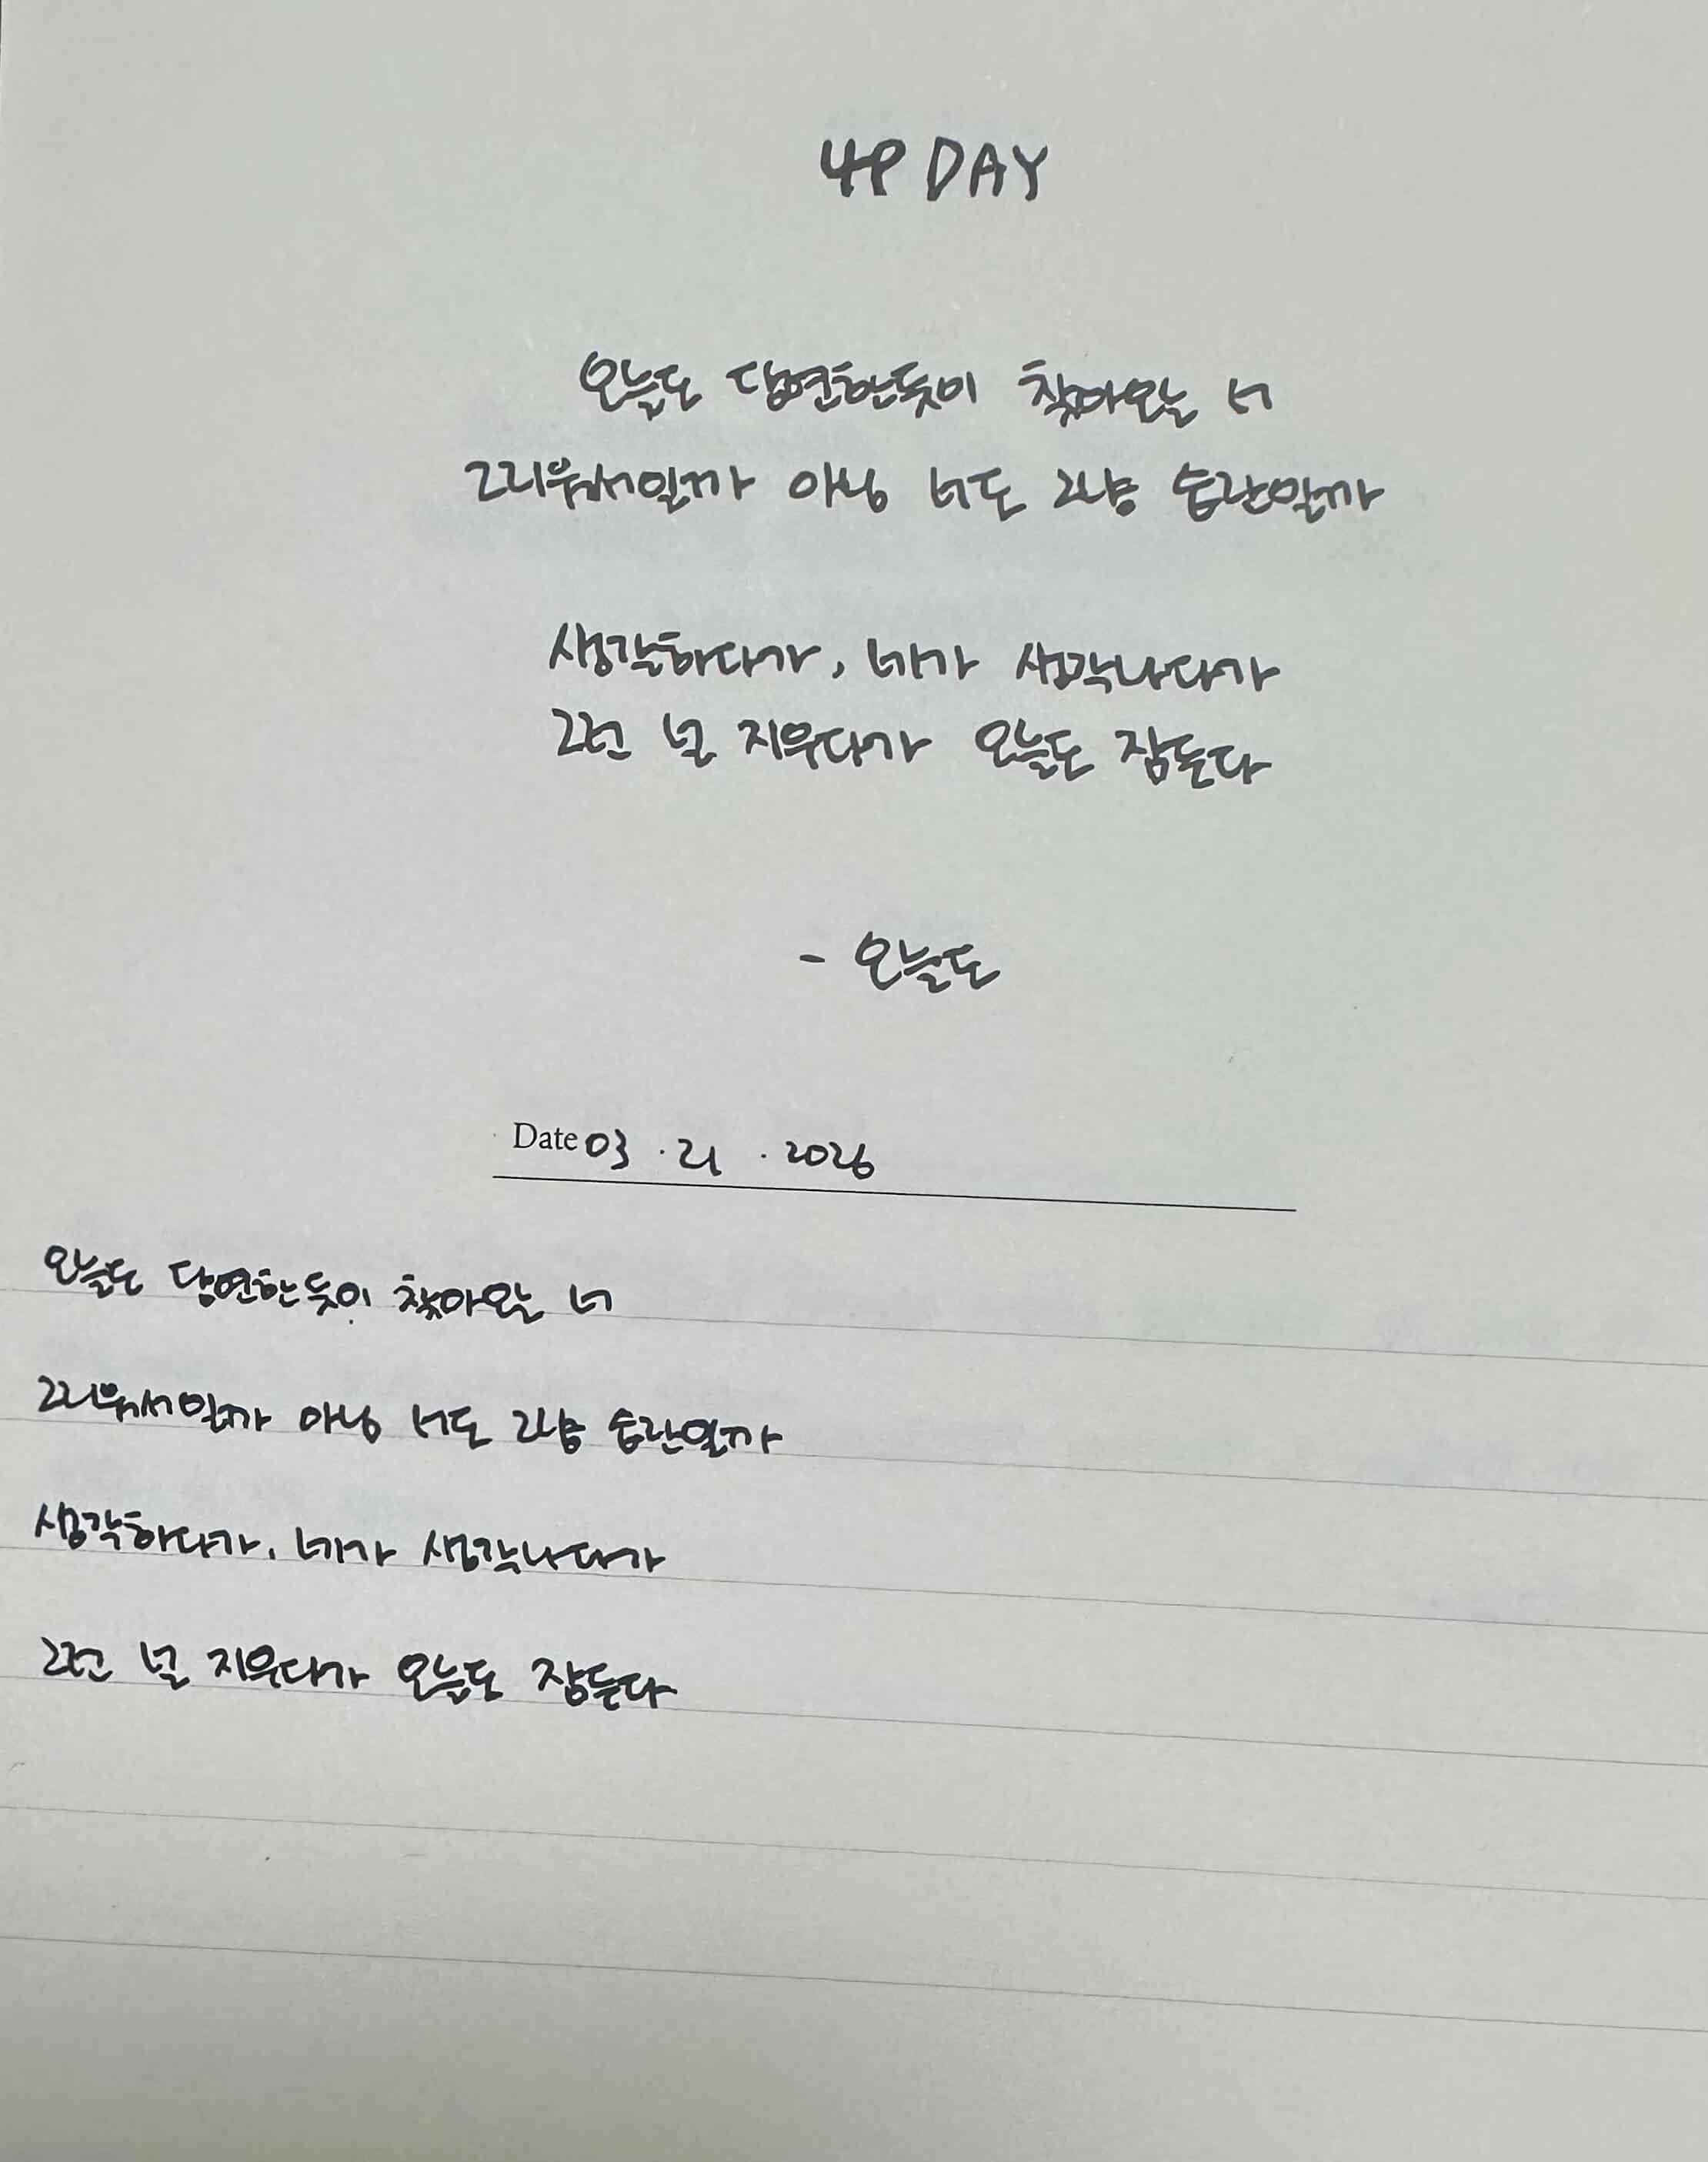 49 DAY
오늘도 당연한듯이 찾아오는 너
그리워서일까 아님 너도 그냥 습관일까
생각하다가, 네가 생각나다가
그런 널 지우다가 오늘도 잠든다
- 오늘도
Date 03 . 21 . 2026
오늘도 당연한듯이 찾아오는 너
그리워서일까 아님 너도 그냥 습관일까
생각하다가, 네가 생각나다가
그런 널 지우다가 오늘도 잠든다